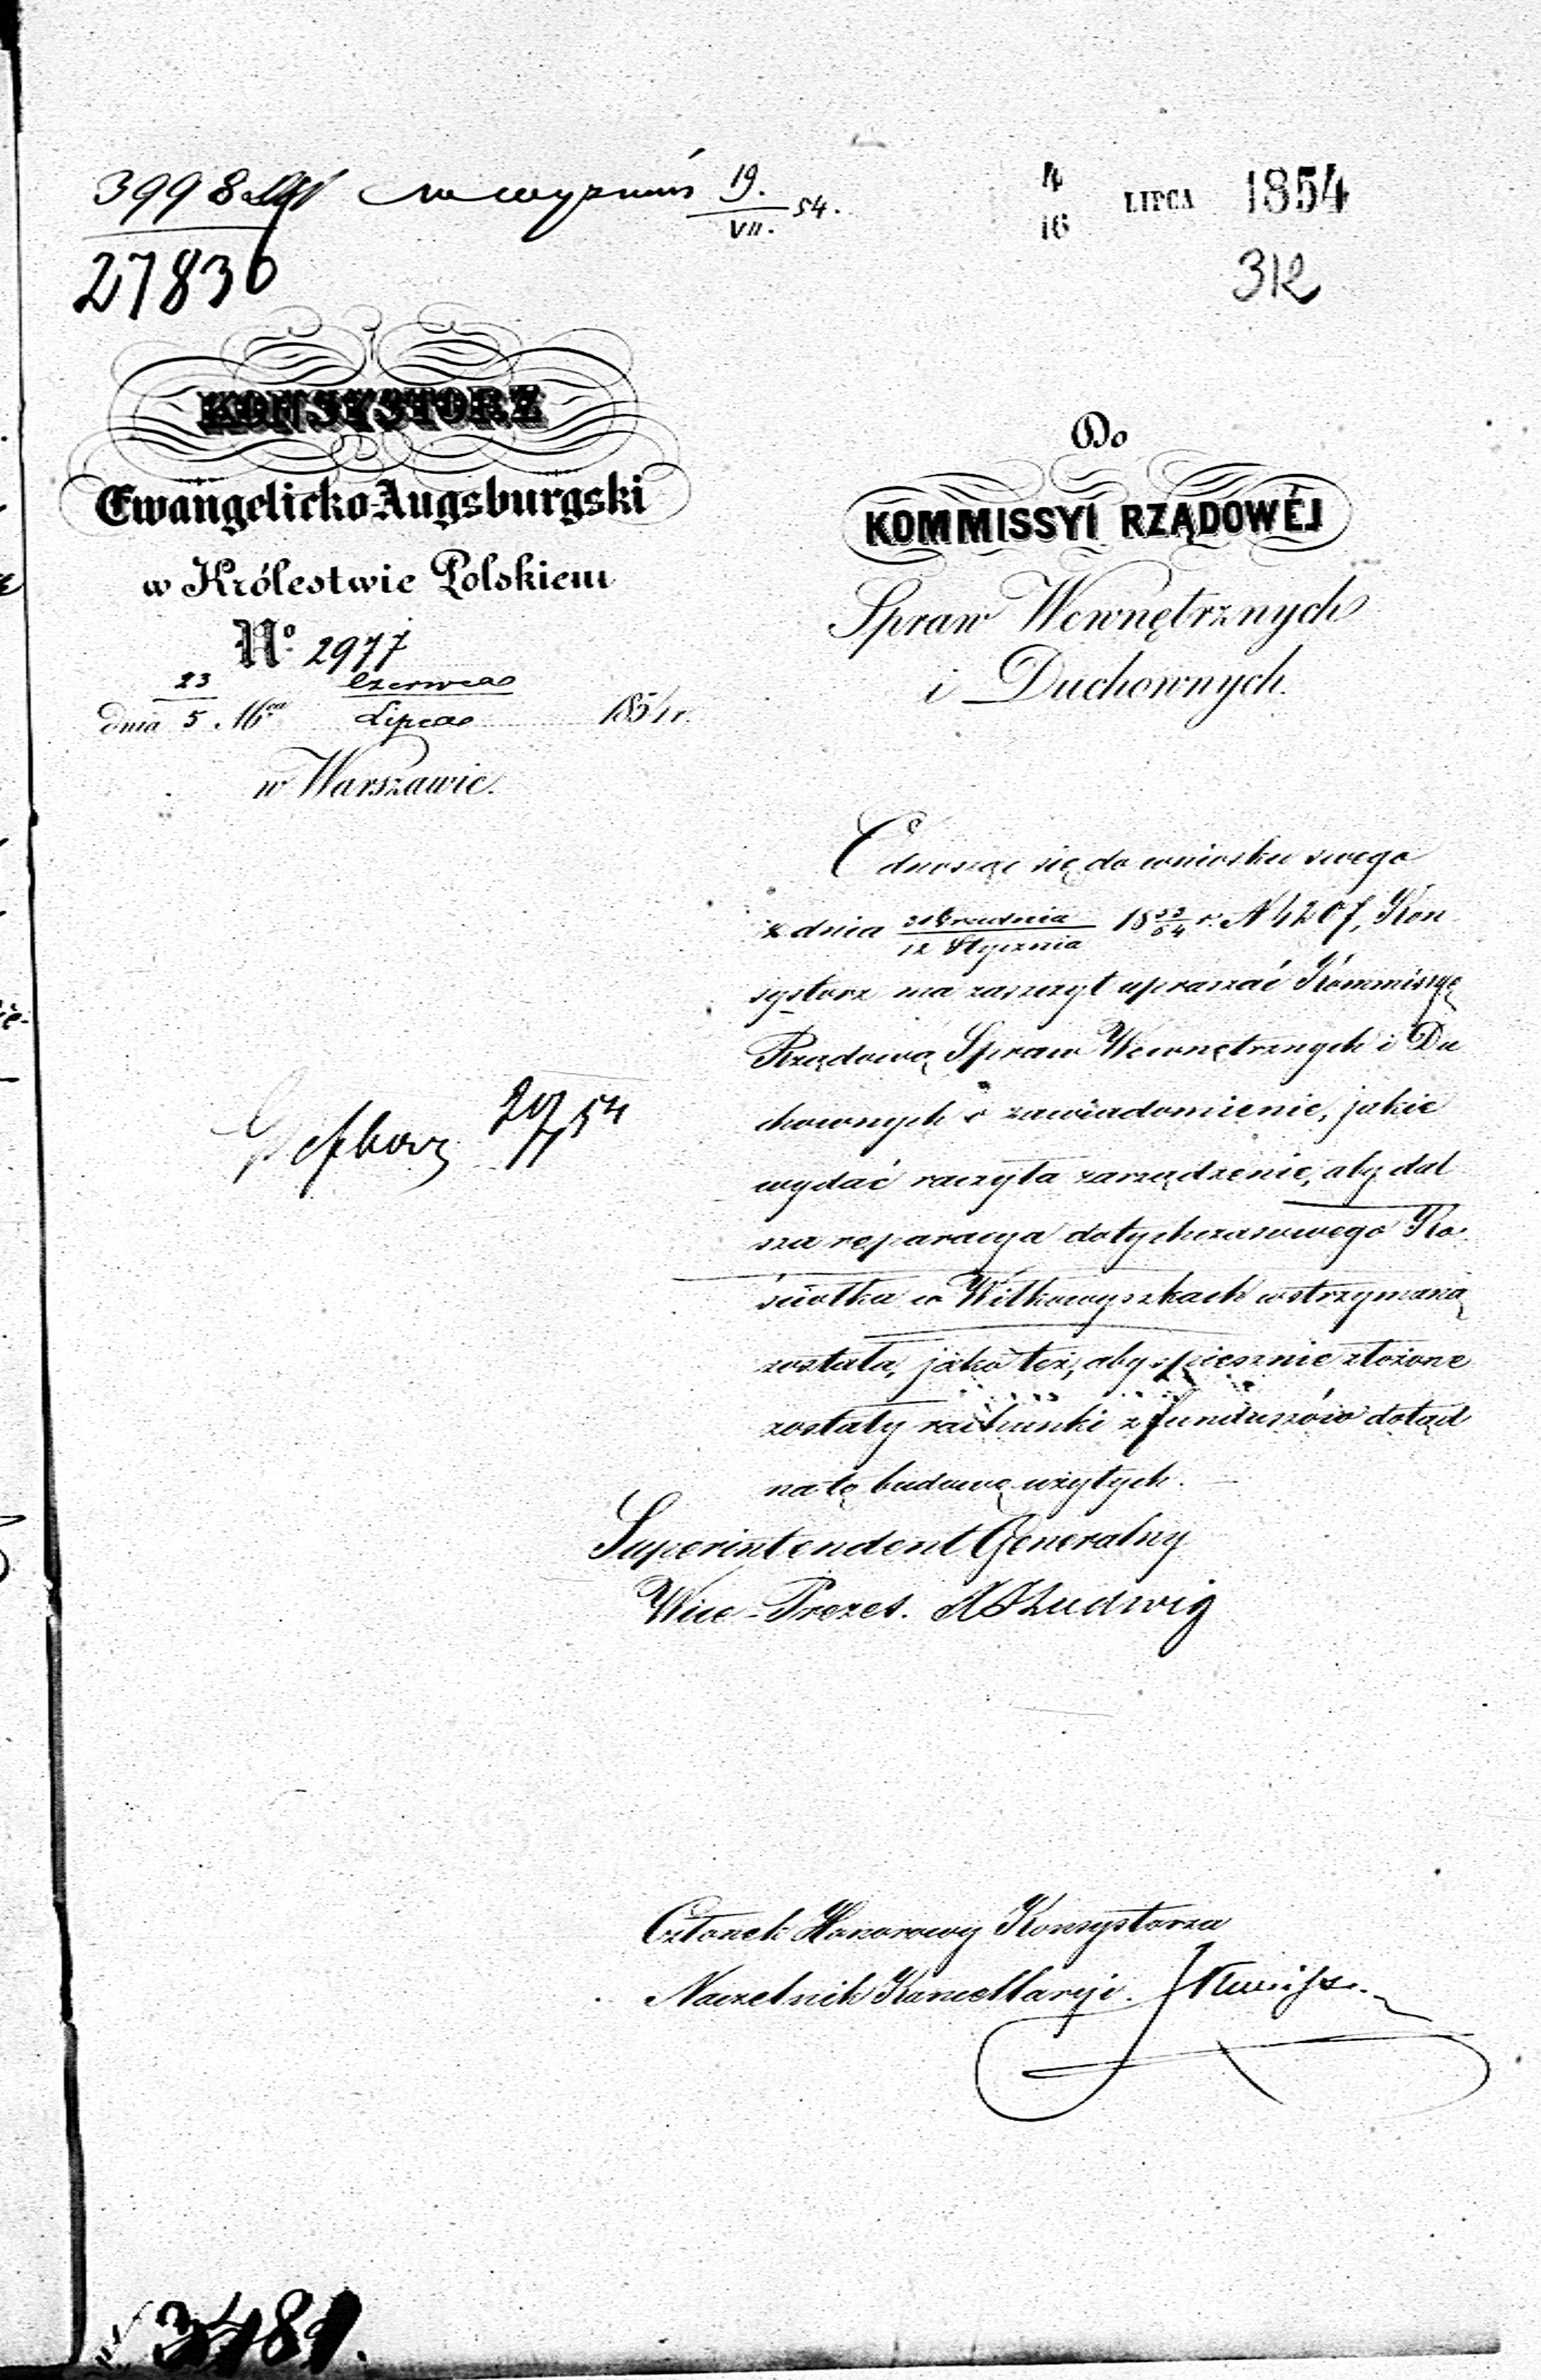 3998
19. / VII. 54.
4 / 16 LIPCA 1854
27836
312
KONSYSTORZ
Ewangelicko-Augsburgski
w Królestwie Polskiem
Nº 2977
dnia 23 / 5 Mca Czerwca / Lipca 1854 r.
w Warszawie.
Do
KOMMISSYI RZĄDOWÉJ
Spraw Wewnętrznych
i Duchownych.
Odnosząc się do wniosku swego
z dnia 31 Grudnia / 12 Stycznia 18 53/54 r. N 4207, Kon
systorz ma zaszczyt upraszać Kommissyę
Rządową Spraw Wewnętrznych i Du
chownych o zawiadomienie, jakie
wydać raczyła zarządzenie, aby dal
sza reparacya dotychczasowego Ko
ściołka w Wilkowyszkach wstrzymaną
została, jako też, aby spiesznie złożone
zostały rachunki z funduszów dotąd
na tę budowę użytych.
20/7 54
Superintendent Generalny
Wice-Prezes. Ludwig
Członek Honorowy Konsystorza
Naczelnik Kancellaryi.